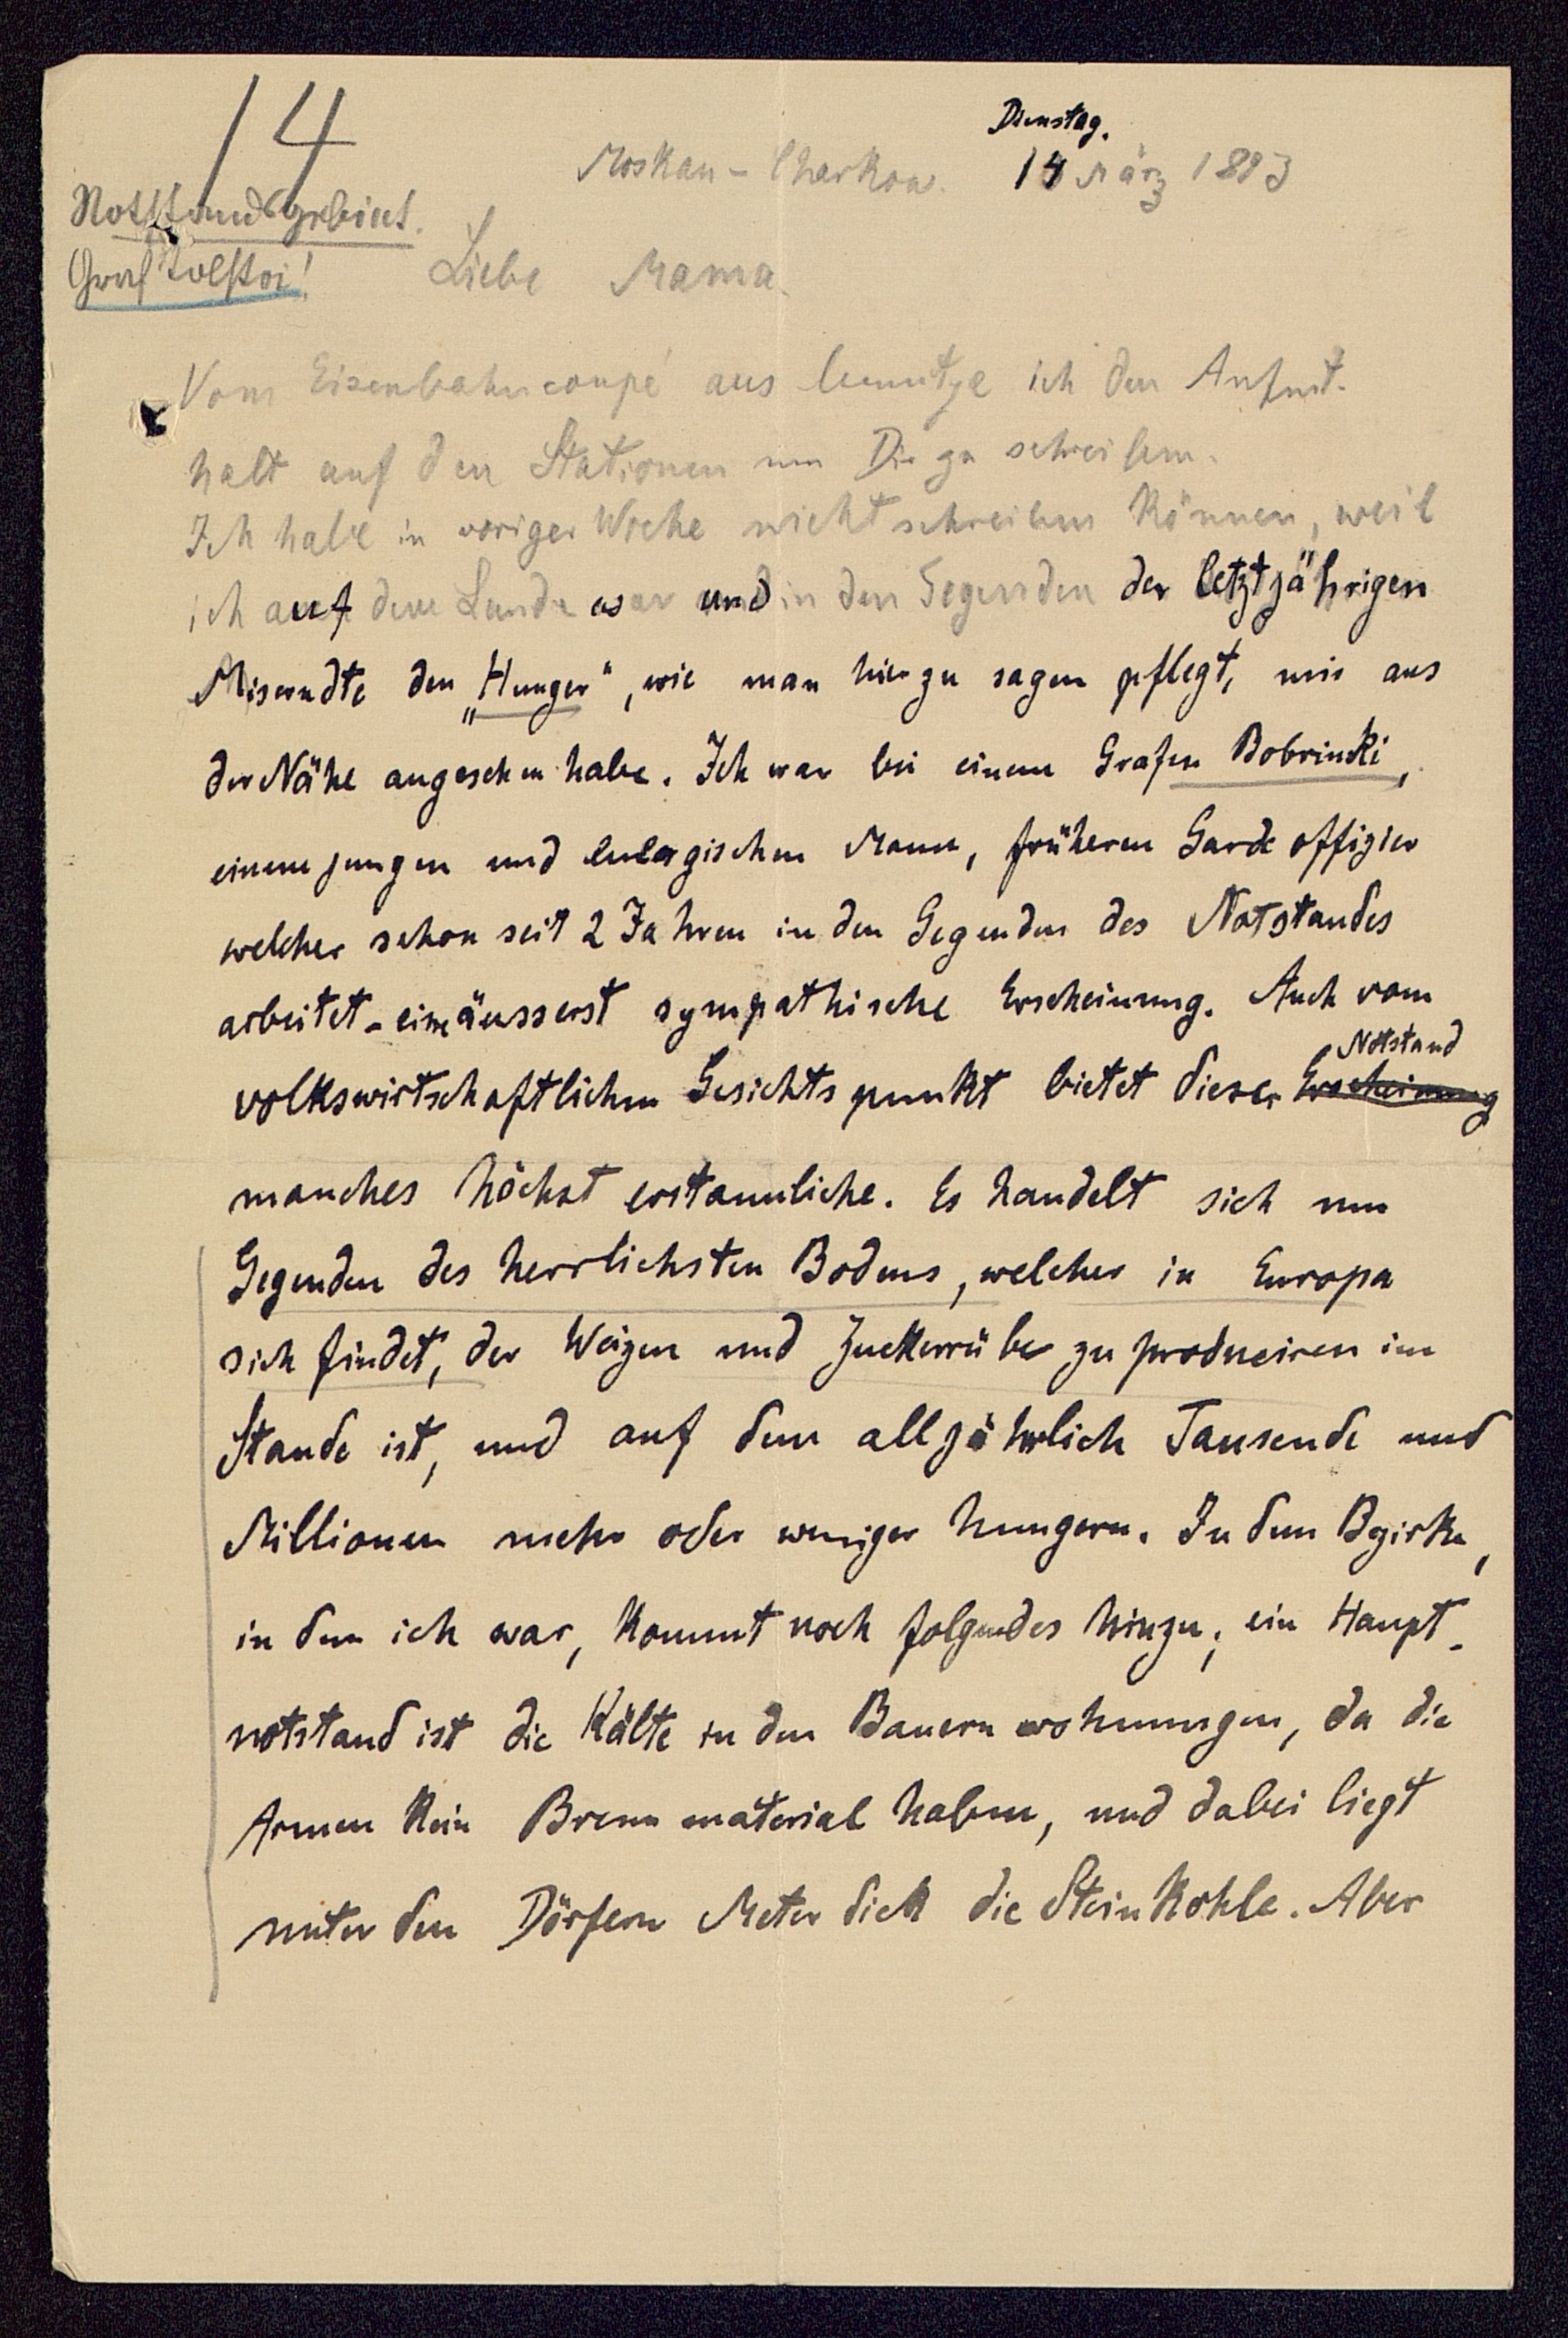 14
Notstandsgebiet.
Graf Tolstoi!
Dienstag.
Moskau - Charkow. 14 März 1893
Liebe Mama.
Vom Eisenbahncoupé aus benutze ich den Aufent-
halt auf den Stationen um Dir zu schreiben.
Ich habe in voriger Woche nicht schreiben können, weil
ich auf dem Lande war und in den Gegenden der letztjährigen
Miserndte den „Hunger“, wie man hier zu sagen pflegt, mir aus
der Nähe angesehen habe. Ich war bei einem Grafen Bobrinski,
einem jungen und energischen Mann, früheren Garde offizier
welcher schon seit 2 Jahren in den Gegenden des Notstandes
arbeitet - eine äusserst sympathische Erscheinung. Auch vom
volkswirtschaftlichen Gesichtspunkt bietet dieser Erscheinung Notstand
manches höchst erstaunliche. Es handelt sich um
Gegenden des herrlichsten Bodens, welcher in Europa
sich findet, der Weizen und Zuckerrübe zu produciren im
Stande ist, und auf dem alljährlich Tausende und
Millionen mehr oder weniger hungern. In dem Bezirke,
in dem ich war, kommt noch folgendes hinzu; ein Haupt-
notstand ist die Kälte in den Bauernwohnungen, da die
Armen kein Brennmaterial haben, und dabei liegt
unter den Dörfern Meter dick die Steinkohle. Aber